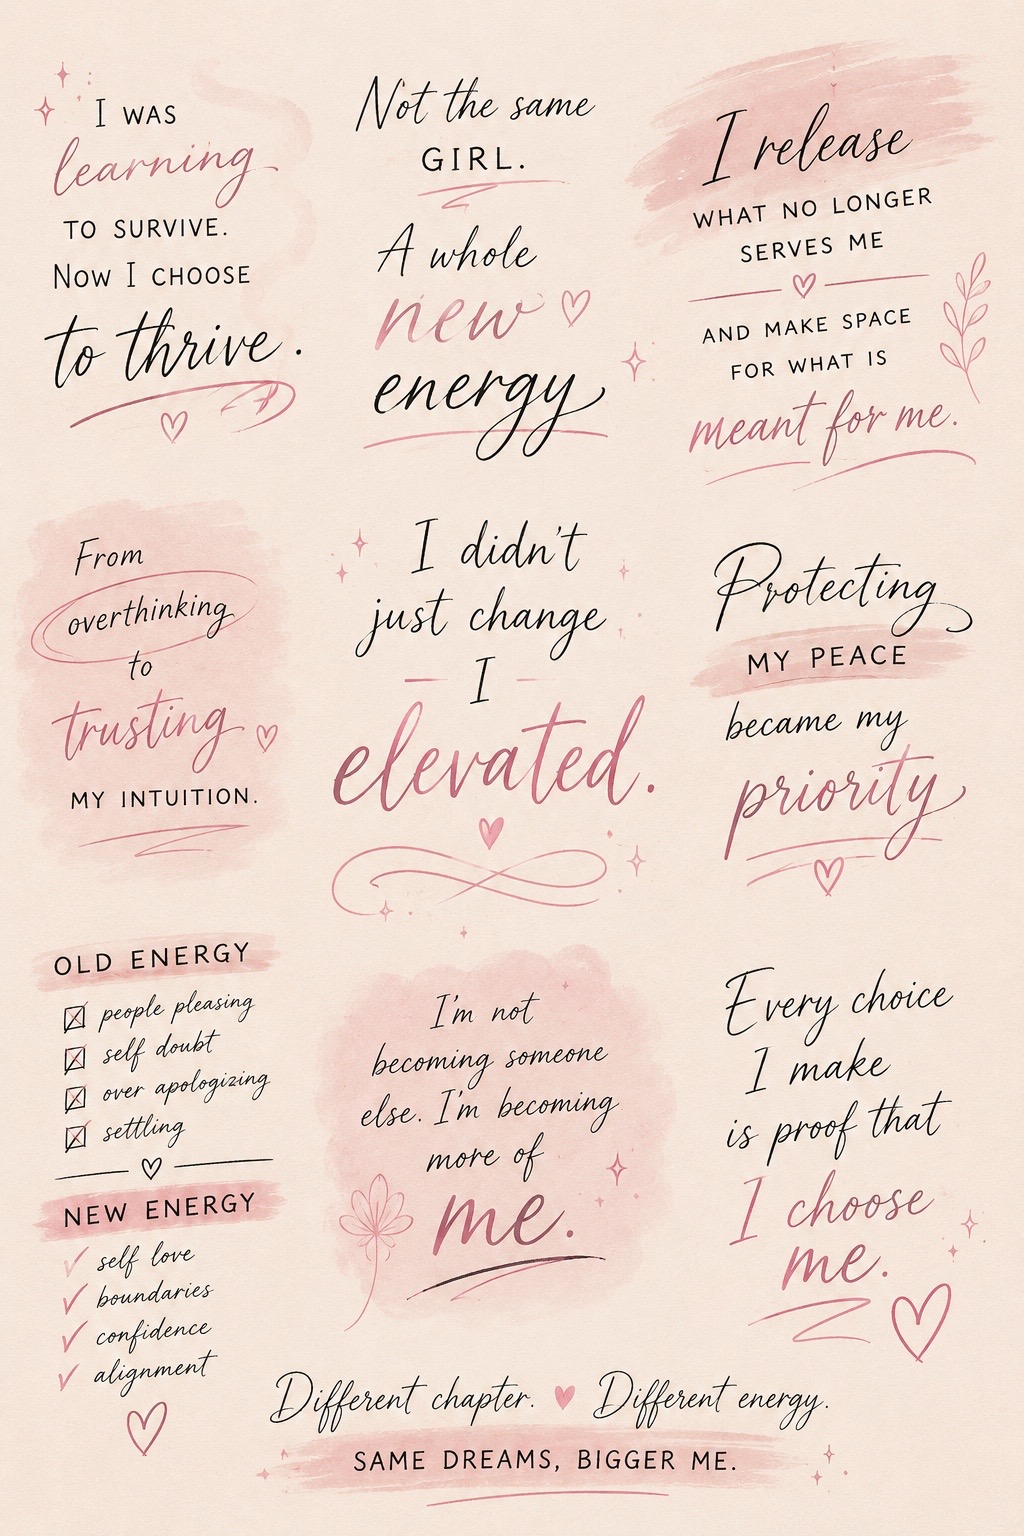 I WAS
learning
TO SURVIVE.
NOW I CHOOSE
to thrive.
Not the same
GIRL.
A whole
new
energy
I release
WHAT NO LONGER
SERVES ME
AND MAKE SPACE
FOR WHAT IS
meant for me.
From
overthinking
to
trusting
MY INTUITION.
I didn't
just change
I
elevated.
Protecting
MY PEACE
became my
priority
OLD ENERGY
people pleasing
self doubt
over apologizing
settling
NEW ENERGY
self love
boundaries
confidence
alignment
I'm not
becoming someone
else. I'm becoming
more of
me.
Every choice
I make
is proof that
I choose
me.
Different chapter. Different energy.
SAME DREAMS, BIGGER ME.